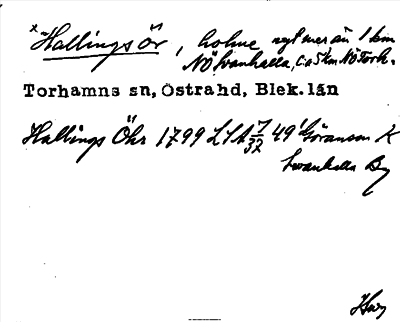 x Hallings ör, holme ngt mer än 1 km
NÖ Svanhalla, c:a 5 km NÖ Torh.
Torhamns sn, Östra hd, Blek. län
Hallings Öhr 1799 LSA 7/32 49' Göranson K
Svanhalla By